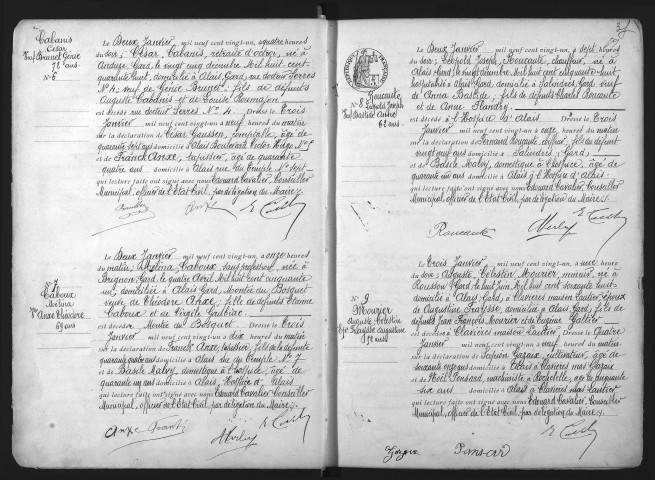 Cabanis
César
Veuf Brunel Génie
72 ans
N° 6
Le Deux Janvier mil neuf cent vingt-un, à quatre heures
du soir; César, Cabanis, retraité d'octroi, né à
Anduze, Gard, le vingt cinq décembre mil huit cent
quarante huit, domicilié à Alais, Gard, rue docteur Serres
N° 4; veuf de Génie Brunel; fils de défunts
Auguste Cabanis et de Louise Soumajon
est décédé rue docteur Serres N° 4. Dressé le Trois
Janvier mil neuf cent vingt-un à neuf heures du matin
sur la déclaration de César Gaussen, employé, âgé de
quarante sept ans domicilié à Alais Boulevard Victor Hugo N°
et de Franck Anxe, tapissier, âgé de quarante
quatre ans domicilié à Alais rue du Temple N° Sept
qui lecture faite ont signé avec Edouard Cavalier, Conseiller
Municipal, officier de l'Etat Civil, par délégation du Maire
N° 7
Caboux
Mélina
Vve Anxe Théodore
69 ans
Le Deux Janvier mil neuf cent vingt-un, à onze heures
du matin; Mélina, Caboux, sans profession, née à
Brignon, Gard, le quatre Avril mil huit cent cinquante
un, domiciliée à Alais, Gard, Montée du Bosquet
veuve de Théodore Anxe; fille de défunts Etienne
Caboux et de Virgile Gaubiac
est décédée Montée du Bosquet Dressé le Trois
Janvier mil neuf cent vingt-un à dix heures du matin
sur la déclaration de Franck Anxe, tapissier, fils de la défunte
quarante quatre ans domicilié à Alais rue du Temple N° 7
et de Basile Malvy, domestique à l'hospice, âgé de
quarante un ans domicilié à Alais, Hospice d'Alais
qui lecture faite ont signé avec Edouard Cavalier Conseiller
Municipal, officier de l'Etat Civil, par délégation du Maire
N° 8
Roucaute
Léopold Joseph
Veuf Bastide Anna
62 ans
Le Deux Janvier mil neuf cent vingt-un, à sept heures
du soir; Léopold Joseph, Roucaute, chauffeur, né à
Alais, Gard, le vingt décembre mil huit cent cinquante-huit
domicilié à Salindres, Gard, veuf
de Anna Bastide; fils de défunts Charles Roucaute
et de Anne Plandry
est décédé à l'Hospice d'Alais Dressé le Trois
Janvier mil neuf cent vingt-un à onze heures du matin
sur la déclaration de Fernand Roucaute, fils du défunt
vingt neuf ans domicilié à Salindres, Gard
et de Basile Malvy, domestique à l'hospice, âgé de
quarante un ans domicilié à Alais à l'Hospice d'Alais
qui lecture faite ont signé avec Edouard Cavalier, Conseiller
Municipal, officier de l'Etat Civil, par délégation du Maire
Roucaute
N° 9
Mourier
Auguste Célestin
Epx Fraisse Augustine
Le Trois Janvier mil neuf cent vingt-un, à une heure
du soir; Auguste, Célestin Mourier, mineur, né à
Rousson, Gard, le huit Juin mil huit cent soixante huit
domicilié à Alais, Gard, à Clavières maison Lautier, époux
de Augustine Fraysse, domiciliée à Alais, Gard; fils de
défunts Jean François Mourier et de Eugénie Galtier
est décédé à Clavières maison Lautier. Dressé le Quatre
Janvier mil neuf cent vingt-un à heures du matin
sur la déclaration de Cazaux, cultivateur, âgé de
soixante onze ans domicilié à Alais à Clavières mas Cazaux
et de Noël Ponsard, machiniste à Rochebelle, âgé de cinquante
six ans domicilié à Alais à Clavières mas Lautier
qui lecture faite ont signé avec Edouard Cavalier, Conseiller
Municipal, officier de l'Etat Civil, par délégation du Maire